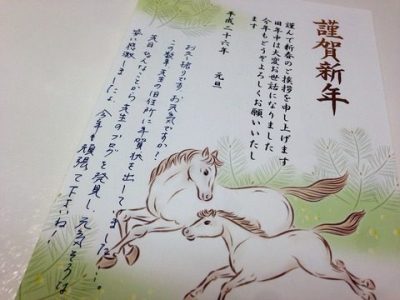 謹賀新年
謹んで新春のご挨拶を申し上げます
旧年中は大変お世話になりました
今年もどうぞよろしくお願いいたし
ます
平成二十六年 元旦
お久し振りです。お元気ですか!
この数年先生の旧住所に年賀状を出していました…。
先日ひょんなことから先生のブログを発見し、元気そうな
姿に感激しましたよ。今年も頑張って下さいね!